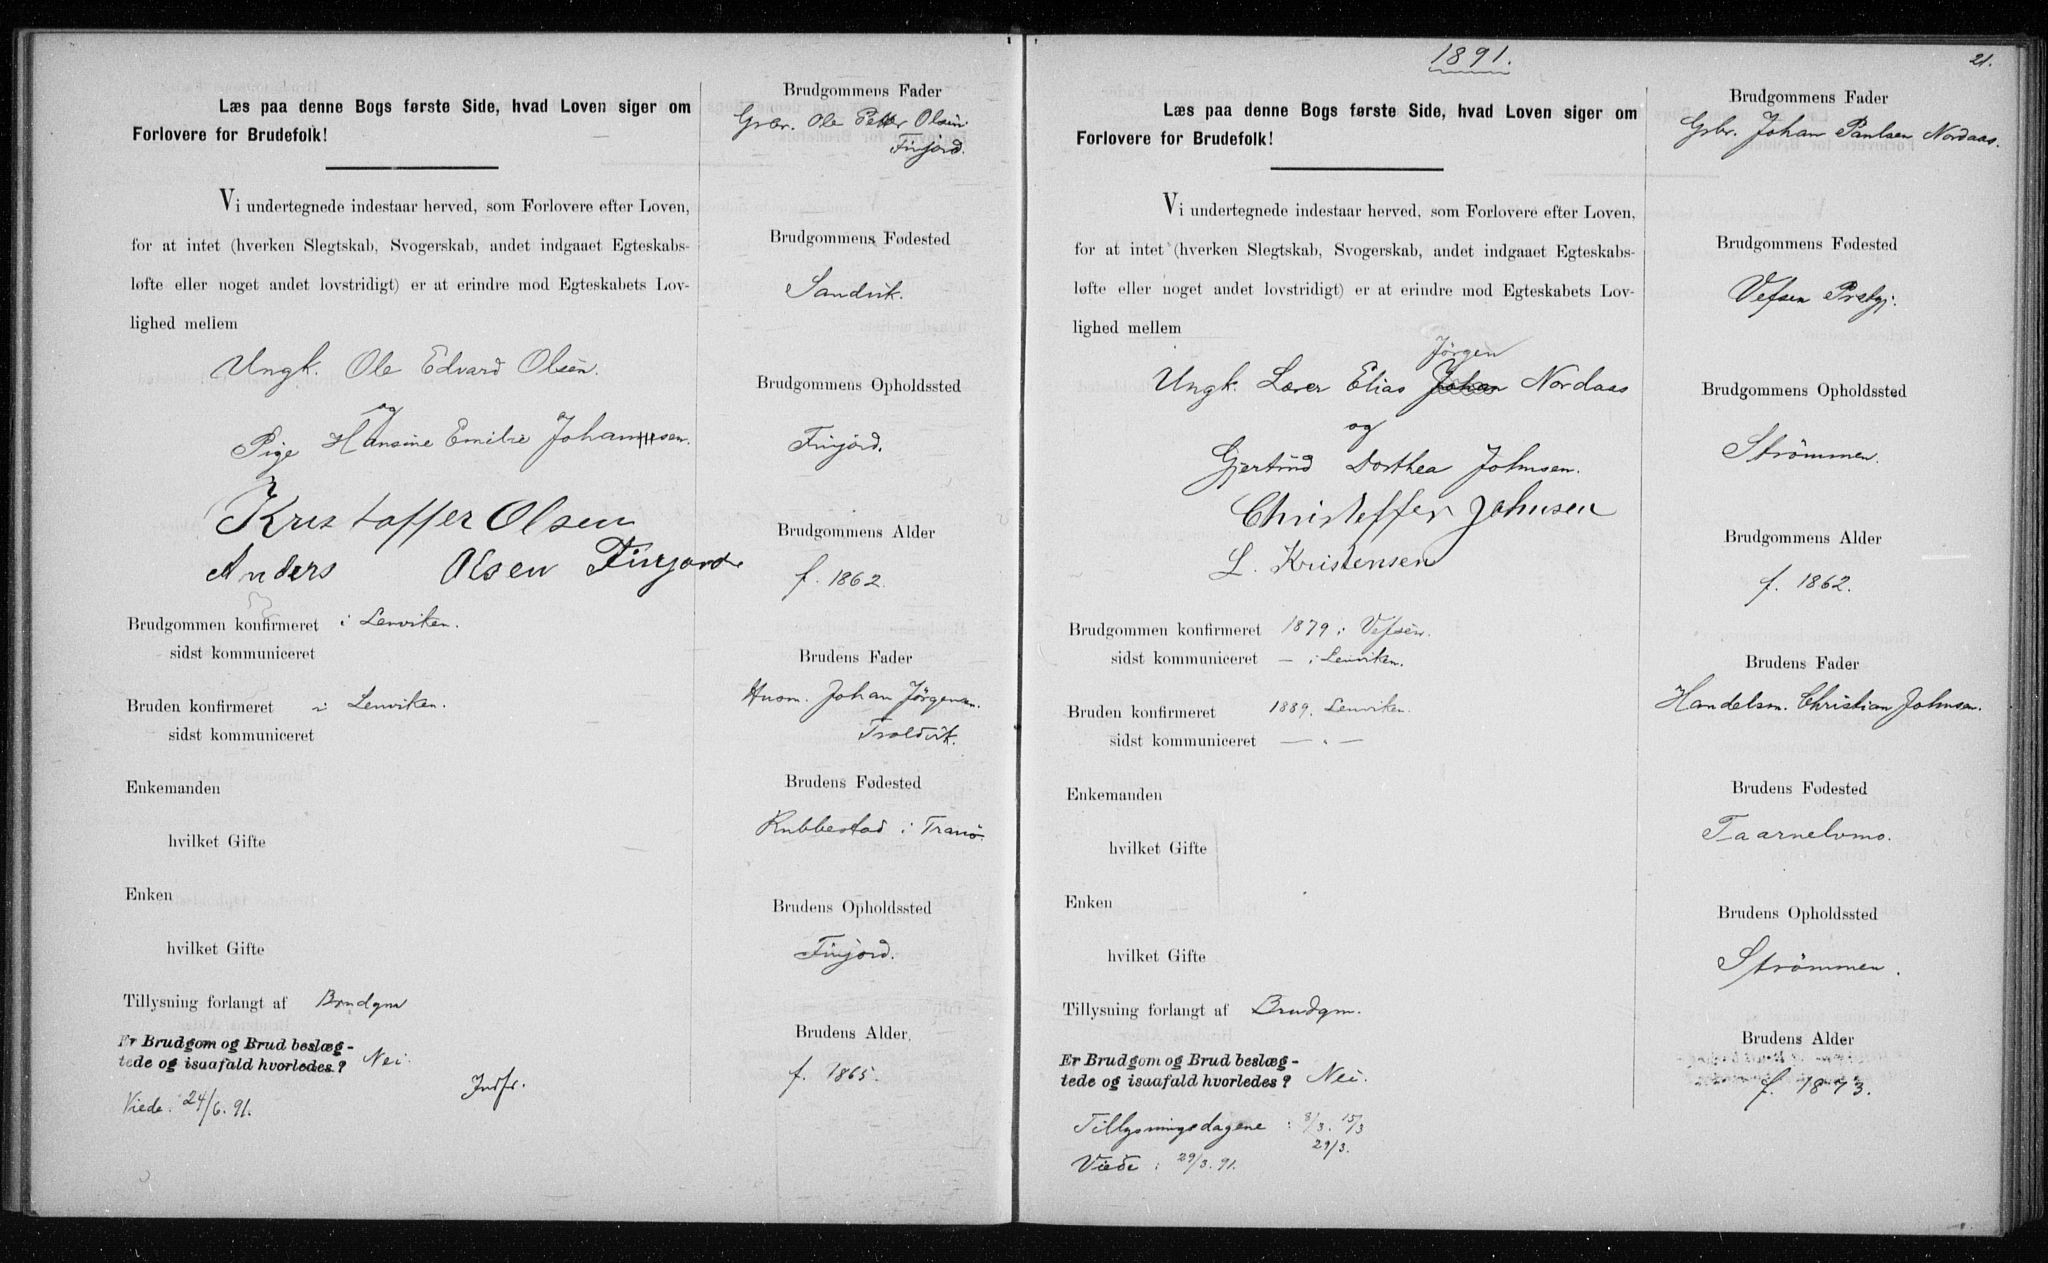 Læs paa denne Bogs første Side, hvad Loven siger om
Forlovere for Brudefolk!
Vi undertegnede indestaar herved, som Forlovere efter Loven,
for at intet (hverken Slegtskab, Svogerskab, andet indgaaet Egteskabs-
løfte eller noget andet lovstridigt) er at erindre mod Egteskabets Lov-
lighed mellem
Ungk. Ole Edvard Olsen.
og
Pige Hansine Emilie Johansen.
Kristoffer Olsen
Anders Olsen Finjord
Brudgommen konfirmeret i Lenviken.
sidst kommuniceret
Bruden konfirmeret i Lenviken.
sidst kommuniceret
Enkemanden
hvilket Gifte
Enken
hvilket Gifte
Tillysning forlangt af Brudgm
Er Brudgom og Brud beslæg-
tede og isaafald hvorledes? Nei
Indfr.
Viede: 24/6.91.
Brudgommens Fader
Gbr. Ole Petter Olsen
Finjord.
Brudgommens Fødested
Sandvik.
Brudgommens Opholdssted
Finjord.
Brudgommens Alder
f. 1862.
Brudens Fader
Husm. Johan Jörgensen.
Troldvik.
Brudens Fødested
Rubbestad i Tranö.
Brudens Opholdssted
Finjord.
Brudens Alder.
f. 1865.
1891.
21.
Læs paa denne Bogs første Side, hvad Loven siger om
Forlovere for Brudefolk!
Vi undertegnede indestaar herved, som Forlovere efter Loven,
for at intet (hverken Slegtskab, Svogerskab, andet indgaaet Egteskabs-
løfte eller noget andet lovstridigt) er at erindre mod Egteskabets Lov-
lighed mellem
Jörgen
Ungk. Lærer Elias Johan Nordaas
og
Gjertrud Dorthea Johnsen.
Christoffer Johnsen
L. Kristensen
Brudgommen konfirmeret 1879 i Vefsen.
sidst kommuniceret — i Lenviken.
Bruden konfirmeret 1889. Lenviken.
sidst kommuniceret — „ —
Enkemanden
hvilket Gifte
Enken
hvilket Gifte
Tillysning forlangt af Brudgm.
Er Brudgom og Brud beslæg-
tede og isaafald hvorledes? Nei.
Tillysningsdagene: 8/3. 15/3
29/3.
Viede: 29/3.91.
Brudgommens Fader
Gbr. Johan Paulsen Nordaas.
Brudgommens Fødested
Vefsen Prstgj.
Brudgommens Opholdssted
Strömmen.
Brudgommens Alder
f. 1862.
Brudens Fader
Handelsm. Christian Johnsen.
Brudens Fødested
Taarnelvmo.
Brudens Opholdssted
Strömmen.
Brudens Alder
f. 1873.